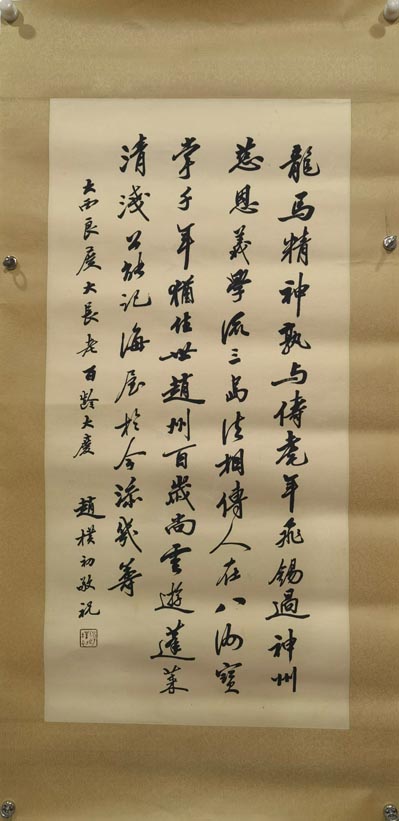 龍馬精神孰与儔虎年飛錫過神州
慈恩義學流三島法相傳人在八洲寶
掌千年猶住世趙州百歲尚雲遊蓬萊
清淺公能記海屋於今添幾籌
大西良慶大長老百齡大慶 趙樸初敬祝